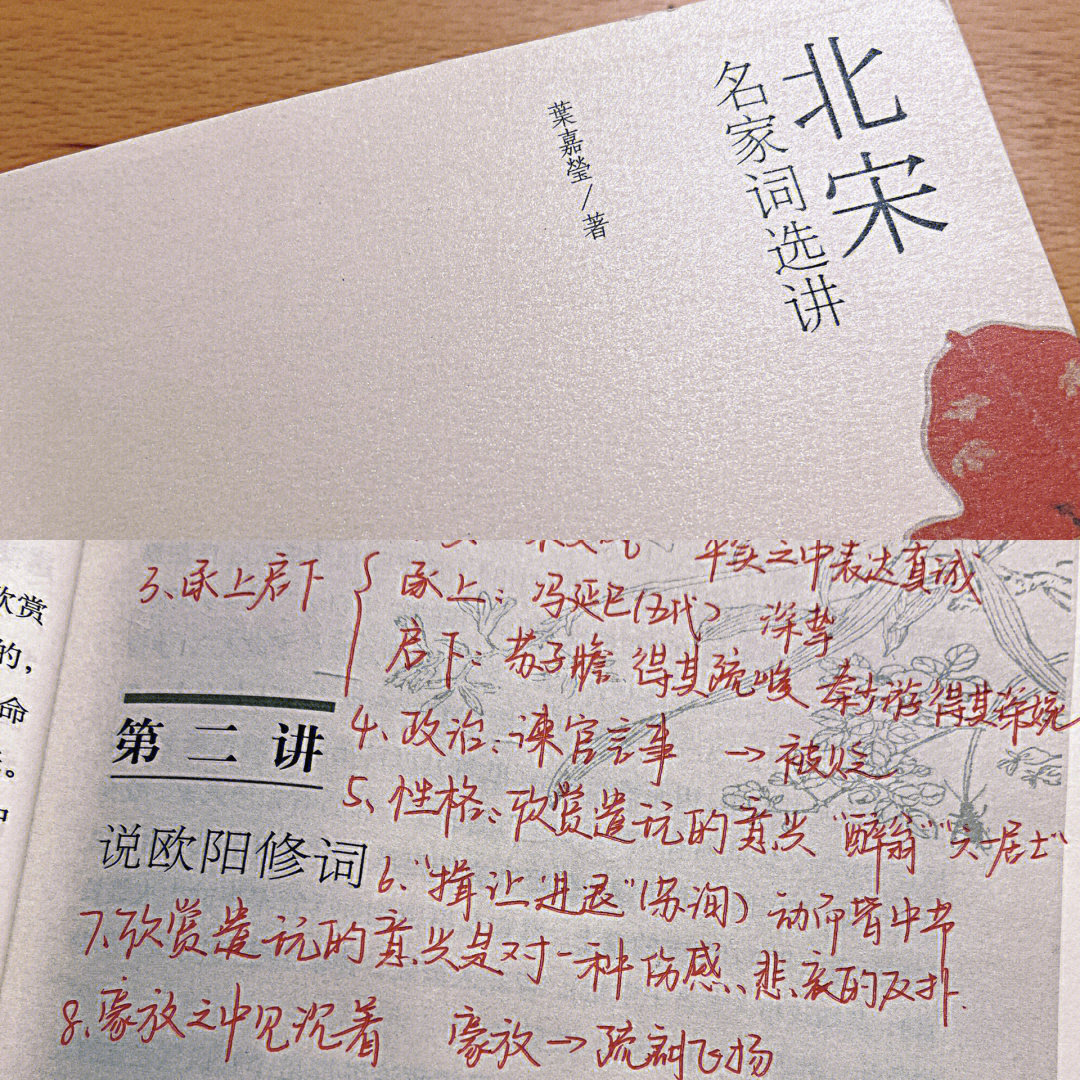 北宋
名家词选讲
葉嘉瑩/著
欣赏
的，
命
。
中
平实之中表达真诚
3、承上启下
承上：冯延巳(五代) 深挚
启下：苏子瞻 得其疏峻 秦少游得其深婉
第二讲
4、政治：谏官言事 → 被贬
5、性格：欣赏遣玩的意兴 "醉翁" "六一居士"
说欧阳修词
6、"揖让进退"(苏洵) 动而皆中节
7、欣赏遣玩的意兴是对一种伤感、悲哀的反扑.
8、豪放之中见沉着 豪放→疏剥飞扬